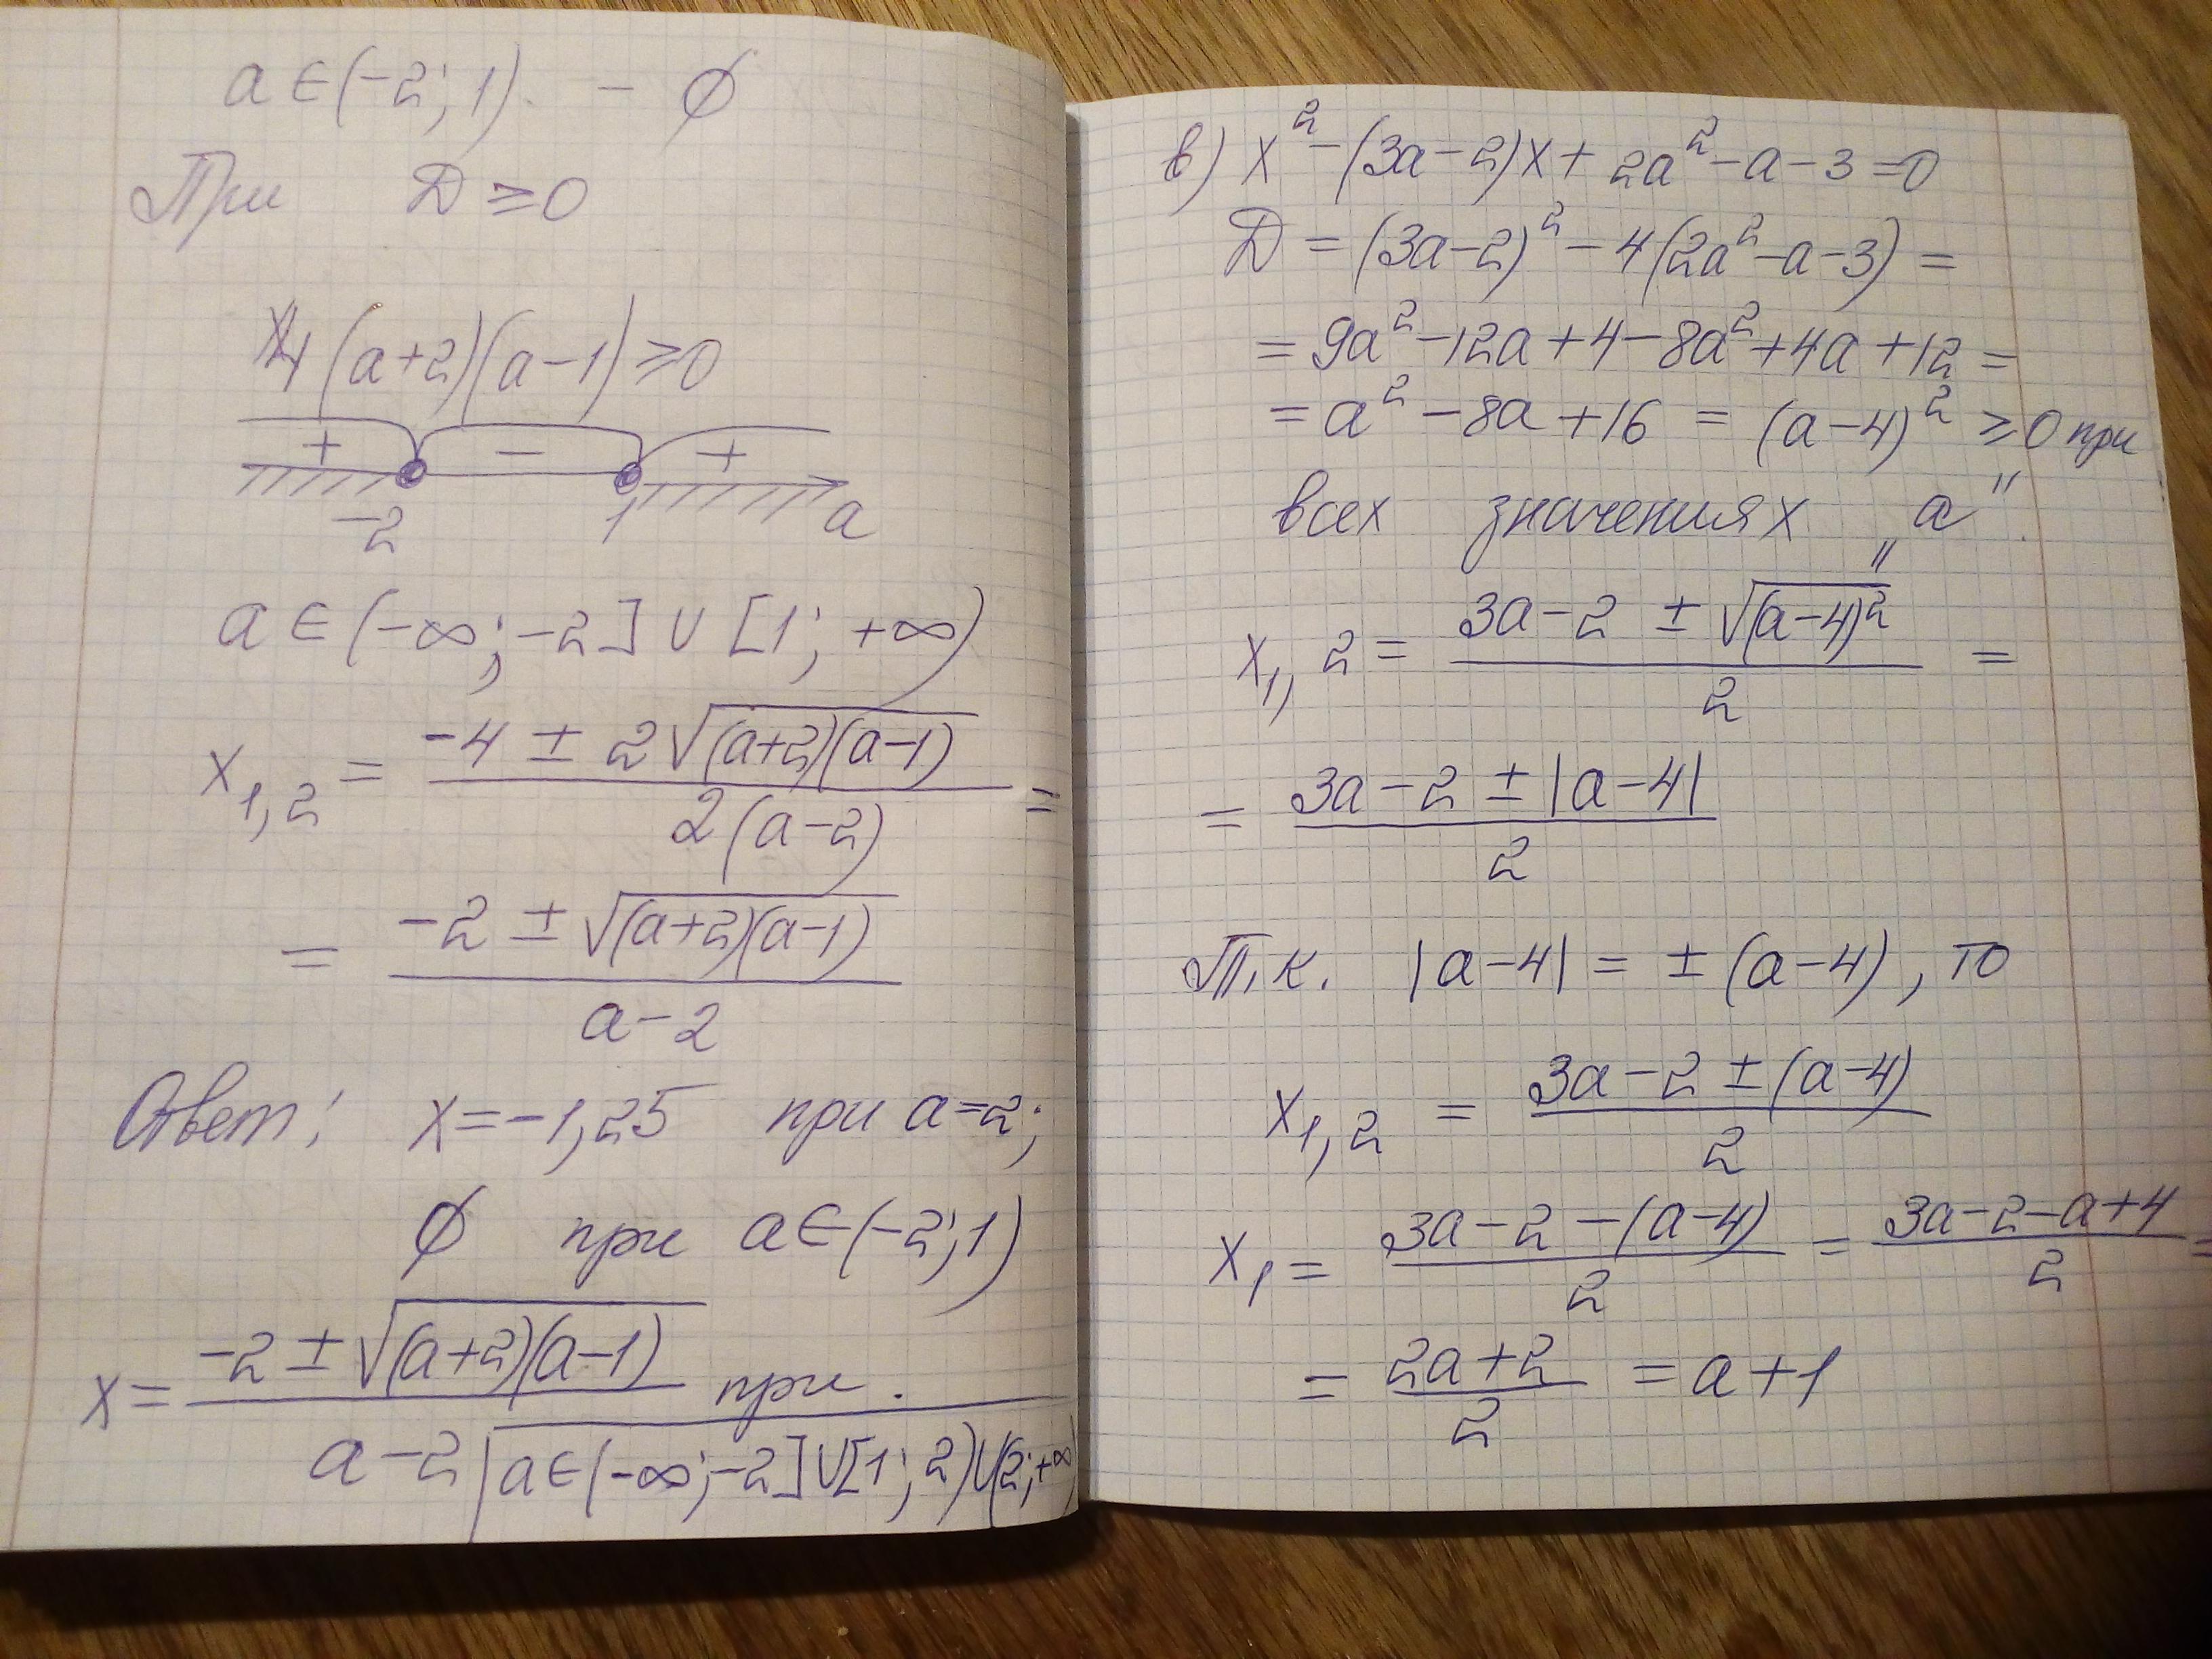 a ∈ (-2; 1). - ∅
При Д ≥ 0
4(a+2)(a-1) ≥ 0
+ - +
-2 1 a
a ∈ (-∞; -2] ∪ [1; +∞)
x₁,₂ = (-4 ± 2√((a+2)(a-1))) / (2(a-2)) =
= (-2 ± √((a+2)(a-1))) / (a-2)
Ответ: x = -1,25 при a=2;
∅ при a ∈ (-2; 1)
x = (-2 ± √((a+2)(a-1))) / (a-2) при.
a ∈ (-∞; -2] ∪ [1; 2) ∪ (2; +∞)
в) x² - (3a-2)x + 2a² - a - 3 = 0
Д = (3a-2)² - 4(2a² - a - 3) =
= 9a² - 12a + 4 - 8a² + 4a + 12 =
= a² - 8a + 16 = (a-4)² ≥ 0 при
всех значениях „a".
x₁,₂ = (3a-2 ± √((a-4)²)) / 2 =
= (3a-2 ± |a-4|) / 2
Т.к. |a-4| = ±(a-4), то
x₁,₂ = (3a-2 ± (a-4)) / 2
x₁ = (3a-2-(a-4)) / 2 = (3a-2-a+4) / 2 =
= (2a+2) / 2 = a+1